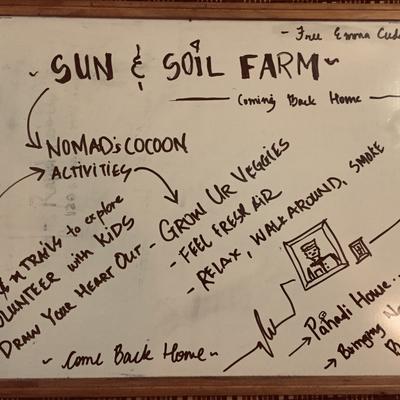 - Free Emma
~ SUN & SOIL FARM ~
Coming Back Home
NOMAD's COCOON
ACTIVITIES
- GROW UR VEGGIES
- FEEL FRESH AIR
- RELAX, WALK AROUND, SMOKE
TRAILS to explore
VOLUNTEER with KIDS
DRAW YOUR HEART OUT
~ Come Back Home ~
Pahadi House...
Bringing